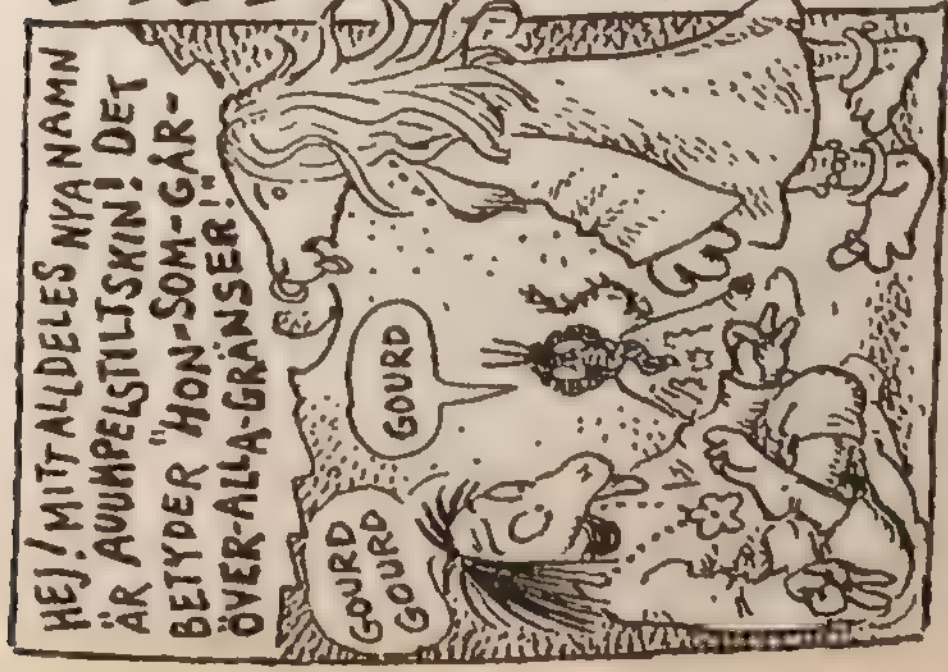 HEJ! MITT ALLDELES NYA NAMN
ÄR AUUMPELSTILTSKIN! DET
BETYDER "HON-SOM-GÅR-
ÖVER-ALLA-GRÄNSER!"
GOURD
GOURD
GOURD